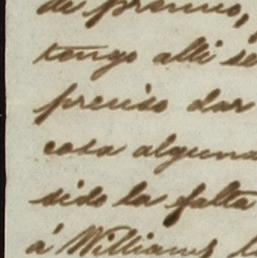 de premio,
tengo alli se
preciso dar
cosa alguna
sido la falta
á Williams l